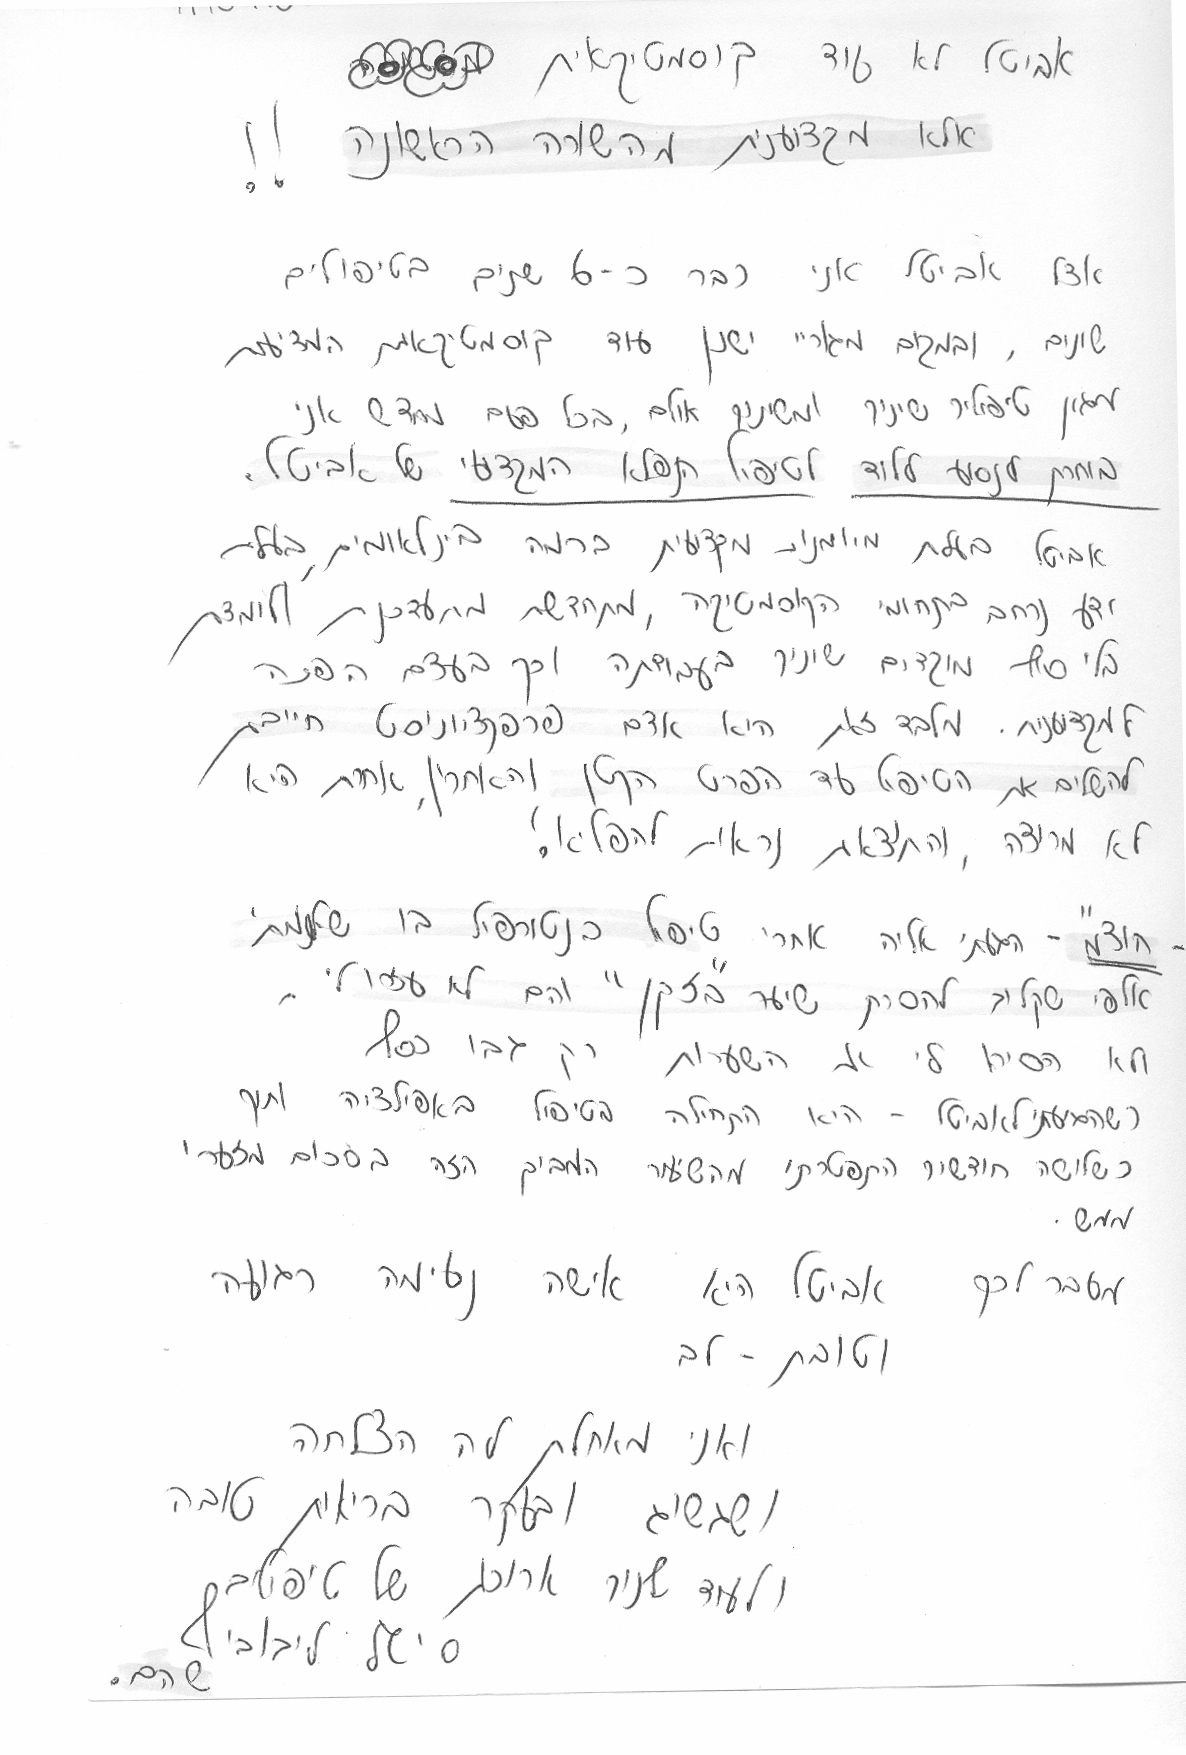 אביטל לא עוד קוסמטיקאית
אלא מקצוענית מהשורה הראשונה !!
אצל אביטל אני כבר כ-6 שנים בטיפולים
שונים, ובמקום מגוריי ישנן עוד קוסמטיקאיות המציעות
מגוון טיפולים שונים ומשונים אולם, בכל פעם מחדש אני
בוחרת לנסוע ללוד לטיפול הנפלא המקצועי של אביטל.
אביטל בעלת מיומנות מקצועית ברמה בינלאומית, בעלת
ידע נרחב בתחומי הקוסמטיקה, מתחדשת מתעדכנת ולומדת
בלי סוף מוקדים שונים בעבודתה וכך בעצם הפכה
למקצוענית. מלבד זאת היא אדם פרפקציוניסט חייבת
להשלים את הטיפול עד הפרט הקטן והאחרון, אחרת היא
לא מרוצה, והתוצאות נראות להפליא!
- חוצמ" - הגעתי אליה אחרי טיפול בנטורפיל בו שילמתי
אלפי שקלים להסרת שיער "בזקן" והם לא עזרו לי -
ולא הסירו לי את השערות רק גבו כסף
כשהגעתי לאביטל - היא התחילה בטיפול באפילציה ותוך
כשלושה חודשים התפטרתי מהשיער המביך הזה בסכום מזערי
ממש.
מעבר לכך אביטל היא אישה נעימה רגועה
וטובת - לב
ואני מאחלת לה הצלחה
ושגשוג ובעיקר בריאות טובה
ולעוד שנים ארוכות של טיפולים
סיגל ליבוביץ
שוהם.